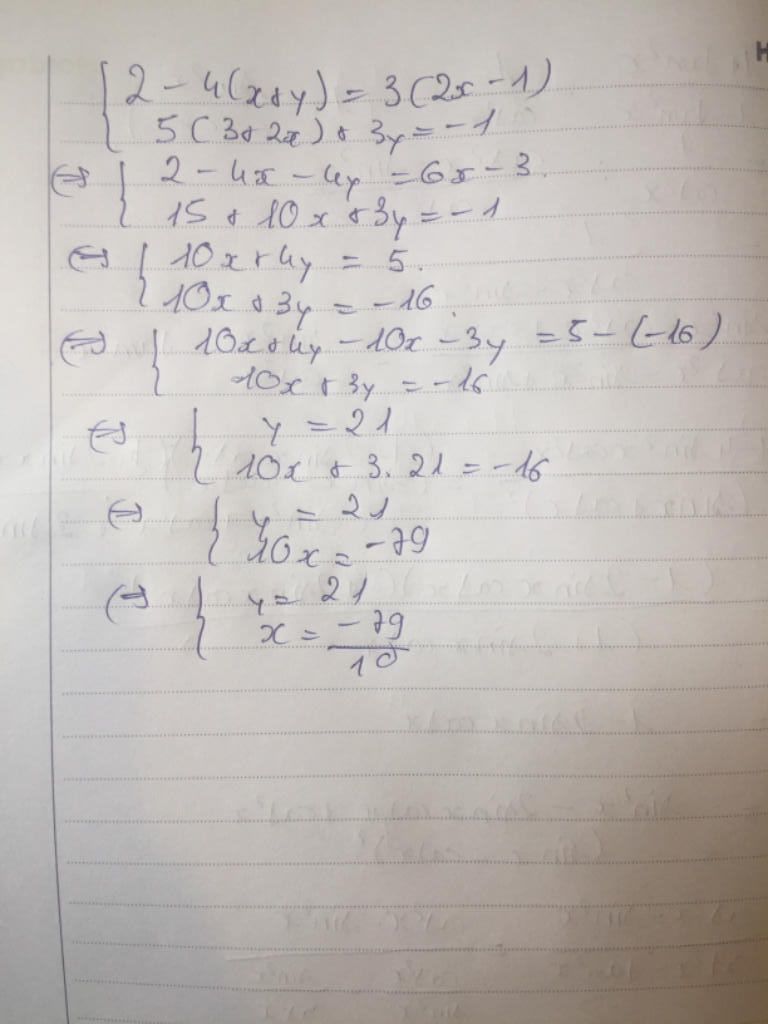 2 - 4(x+y) = 3(2x - 1)
5(3+2x) + 3y = -1
⇔ 2 - 4x - 4y = 6x - 3.
15 + 10x + 3y = -1
⇔ 10x + 4y = 5.
10x + 3y = -16.
⇔ 10x + 4y - 10x - 3y = 5 - (-16)
10x + 3y = -16
⇔ y = 21
10x + 3. 21 = -16
⇔ y = 21
10x = -79
⇔ y = 21
x = -79/10